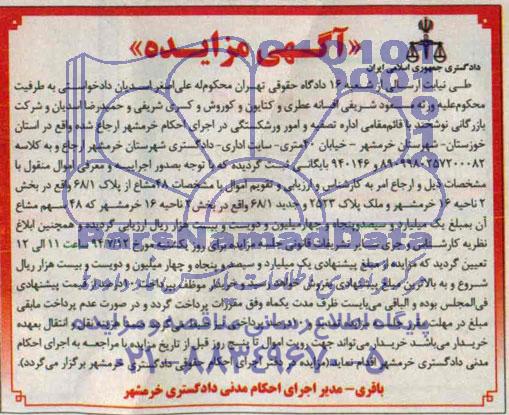 «آگهی مزایده»
دادگستری جمهوری اسلامی ایران
طی نیابت ارسالی از شعبه ۱۶ دادگاه حقوقی تهران محکوم‌له علی‌اصغر اسدیان دادخواستی به طرفیت
محکوم‌علیه ورثه مسعود شریفی افسانه عطری و کتایون و کوروش و کسری شریفی و حمیدرضا اسدیان و شرکت
بازرگانی نوشخند با قائم‌مقامی اداره تصفیه و امور ورشکستگی در اجرای احکام خرمشهر ارجاع شده واقع در استان
خوزستان- شهرستان خرمشهر - خیابان ۴۰متری- سایت اداری- دادگستری شهرستان خرمشهر ارجاع و به کلاسه
۸۹۰۹۹۸۰۲۵۷۲۰۰۰۸۲ و ۹۴۰۱۴۶ بایگانی ثبت گردیده که با توجه بصدور اجراییه و معرفی اموال منقول با
مشخصات ذیل و ارجاع امر به کارشناس و ارزیابی و تقویم اموال با مشخصات ۴۸مشاع از پلاک ۶۸/۱ واقع در بخش
۲ ناحیه ۱۶ خرمشهر و ملک پلاک ۲۵۲۳ و جدید ۶۸/۱ واقع در بخش ۲ ناحیه ۱۶ خرمشهر که ۴۸ سهم مشاع
آن بمبلغ یک میلیارد و سیصدوپنجاه و چهارمیلیون و دویست و بیست هزار ریال ارزیابی گردیده و همچنین ابلاغ
نظریه کارشناسی و جری تشریفات قانونی جلسه مزایده برای روز یکشنبه مورخ ساعت 11 الی 12
تعیین گردید که مزایده از مبلغ پیشنهادی یک میلیارد و سیصد و پنجاه و چهار میلیون و دویست و بیست هزار ریال
شروع و به بالاترین مبلغ پیشنهادی بفروش خواهد رسید و خریدار موظف بپرداخت ۱۰درصد از قیمت پیشنهادی
فی‌المجلس بوده و الباقی می‌بایست ظرف مدت یکماه وفق مقررات پرداخت گردد و در صورت عدم پرداخت مابقی
مبلغ در مهلت
خریدار می‌باشد خریدار می‌تواند جهت رویت اموال تا پنج روز قبل از تاریخ مزایده با مراجعه به اجرای احکام
مدنی دادگستری خرمشهر اقدام نماید(مزایده در دفتر اجرای احکام حقوقی دادگستری خرمشهر برگزار می‌گردد).
باقری- مدیر اجرای احکام مدنی دادگستری خرمشهر
پایگاه اطلاع رسانی مناقصه و مزایده
۰۲۱-۸۸۳۴۹۶۷۰-۵